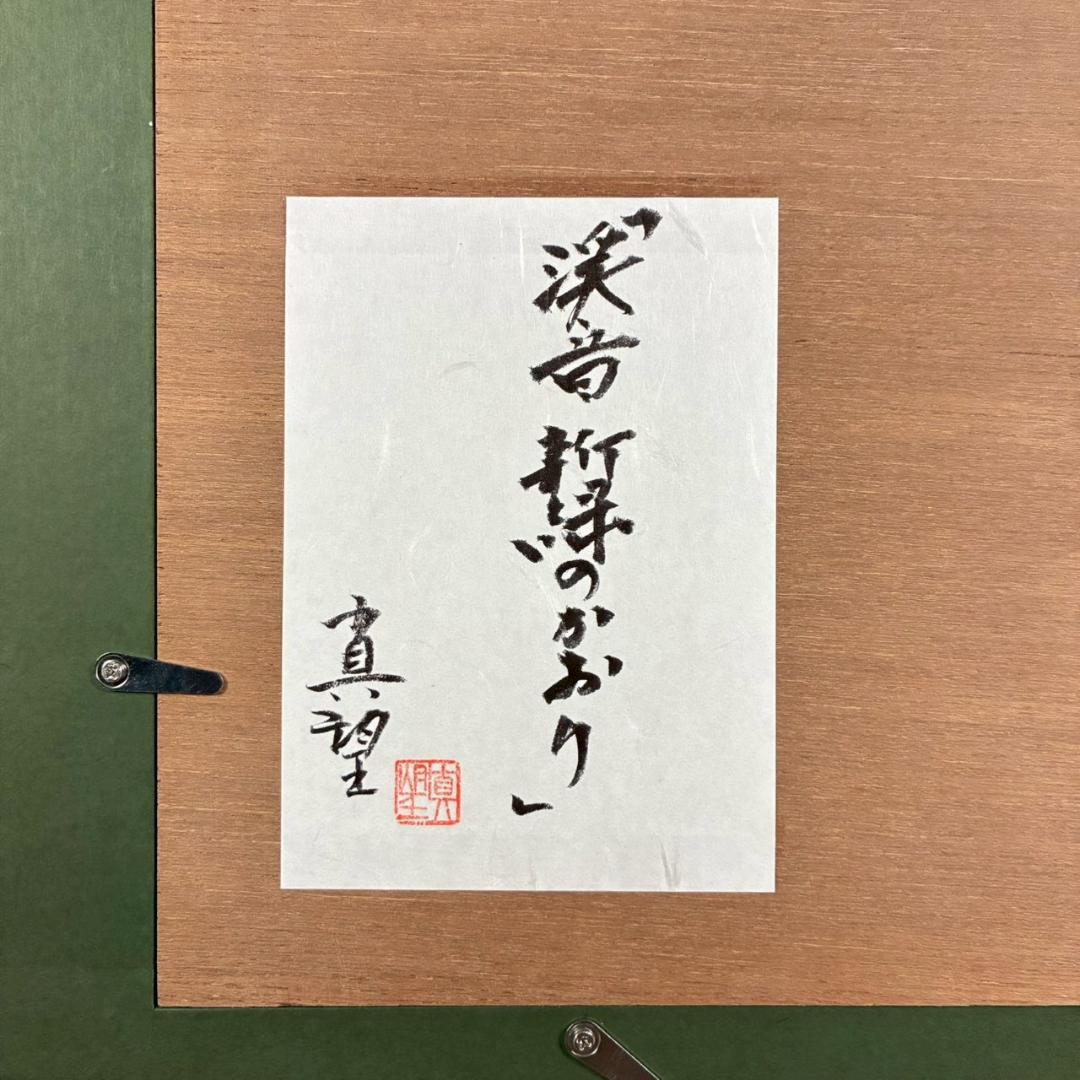 「渓音 新緑のかおり」
真望